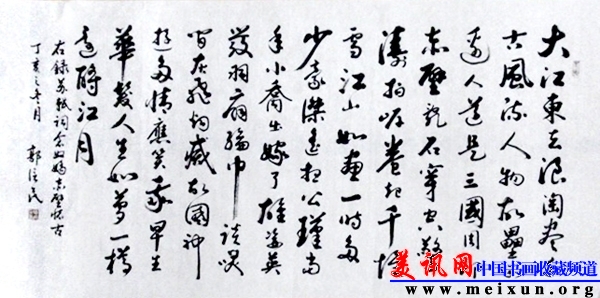 大江東去浪淘盡千
古風流人物故壘西
邊人道是三國周
赤壁亂石穿空驚
濤拍岸卷起千堆
雪江山如畫一時多
少豪傑遙想公瑾當
年小喬出嫁了雄姿英
發羽扇綸巾談笑
間灰飛烟滅故國神
遊多情應笑我早生
華髮人生如夢一樽
還酹江月
右錄苏軾詞念奴嬌赤壁怀古
丁亥之春月 郭信民
美讯网 中国书画收藏频道
www.meixun.org